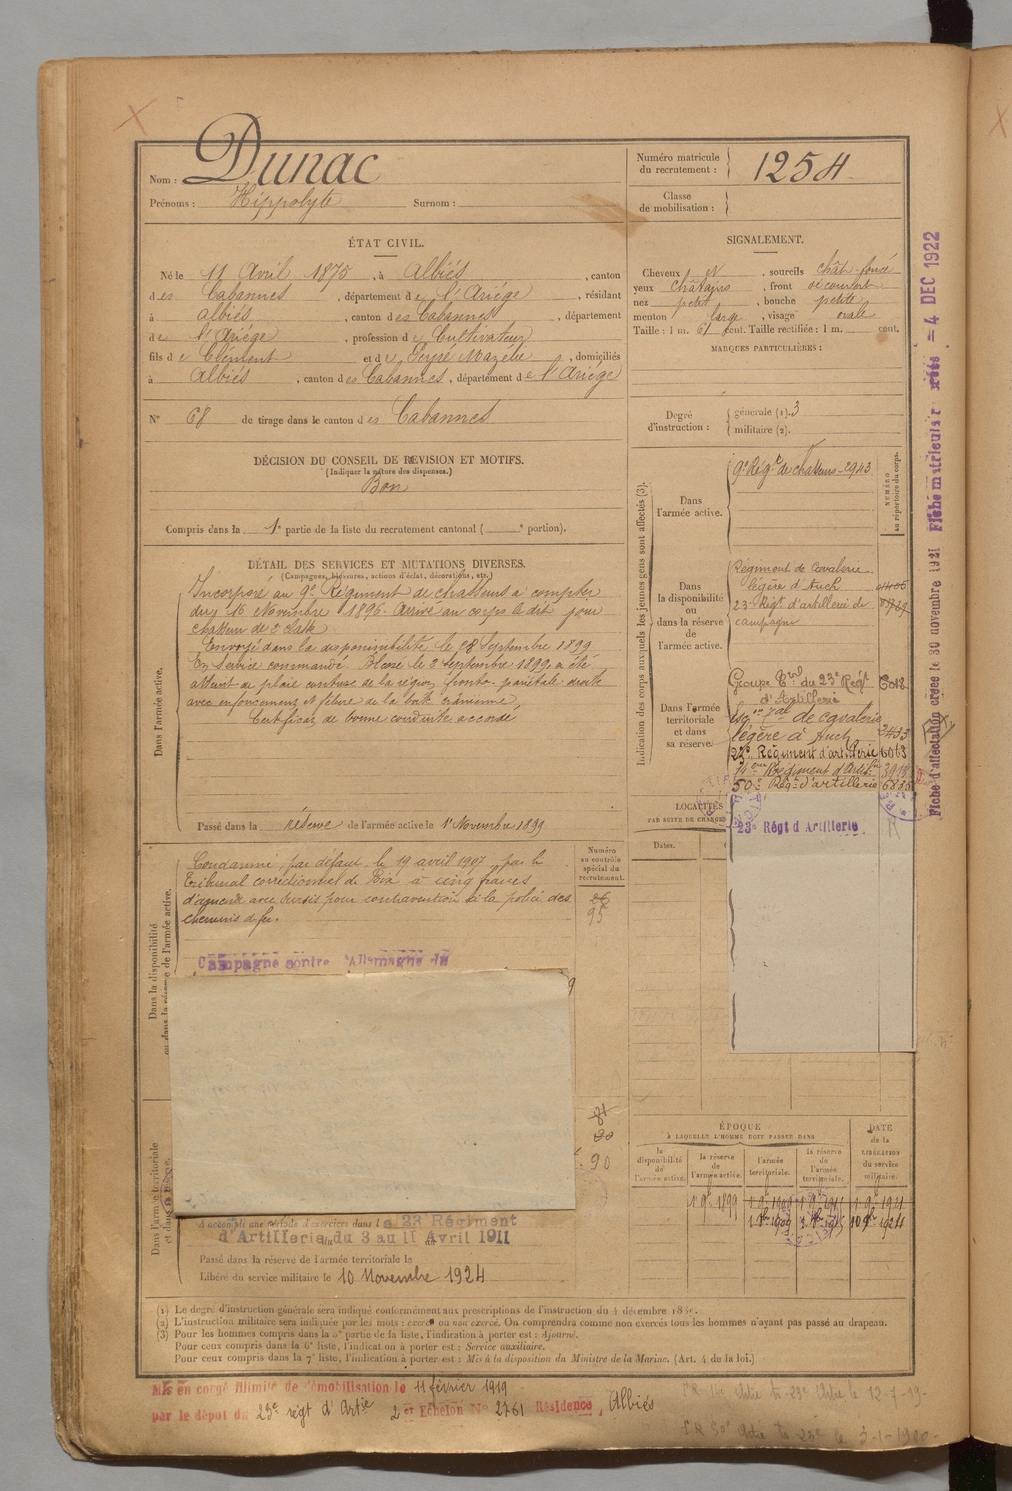 Nom : Dunac
Prénoms : Hippolyte Surnom :
Numéro matricule du recrutement : 1254
Classe de mobilisation :
ÉTAT CIVIL.
Né le 11 Avril 1875, à Albiés, canton
des Cabannes, département de l'Ariége, résidant
à Albiés, canton des Cabannes, département
de l'Ariége, profession de Cultivateur
fils de Clément et de Mazelie, domiciliés
à Albiés, canton des Cabannes, département de l'Ariége
N° 68 de tirage dans le canton des Cabannes
SIGNALEMENT.
Cheveux N, sourcils chât-foncé
yeux châtains, front découvert
nez petit, bouche petite
menton large, visage ovale
Taille : 1 m. 61 cent. Taille rectifiée : 1 m. cent.
MARQUES PARTICULIÈRES :
Degré d'instruction : générale (1). 3
militaire (2).
DÉCISION DU CONSEIL DE REVISION ET MOTIFS.
(Indiquer la nature des dispenses.)
Bon
Compris dans la 1e partie de la liste du recrutement cantonal ( e portion).
DÉTAIL DES SERVICES ET MUTATIONS DIVERSES.
(Campagnes, blessures, actions d'éclat, décorations, etc.)
Dans l'armée active.
Incorporé au 9e Régiment de chasseurs à compter
du 16 Novembre 1896. Arrivé au corps le dit jour
chasseur de 2e classe
Envoyé dans la disponibilité le 28 Septembre 1899
En service commandé. Blessé le 2 Septembre 1899, a été
atteint de plaie contuse de la région fronto-pariétale droite
avec enfoncement et fêlure de la boîte crânienne
Certificat de bonne conduite accordé
Passé dans la réserve de l'armée active le 1er Novembre 1899
Dans la disponibilité ou dans la réserve de l'armée active.
Condamné par défaut le 19 avril 1907 par le
Tribunal correctionnel de à cinq francs
d'amende avec sursis pour contravention à la police des
chemins de fer.
Campagne contre l'Allemagne du
Numéro au contrôle spécial du recrutement.
95
90
Indication des corps auxquels les jeunes gens sont affectés (3).
NUMÉRO au répertoire du corps.
Dans l'armée active.
9e Régt de chasseurs 2943
Dans la disponibilité ou dans la réserve de l'armée active.
Regiment de Cavalerie
légère d'Auch
23e Régt d'artillerie de
campagne
Dans l'armée territoriale et dans sa réserve.
Groupe Trial du 23e Régt
d'Artillerie
Esqon Tal de cavalerie
légère à Auch
23e Régiment d'artillerie 6063
Régiment d'Artie
50e Régt d'artillerie
23e Régt d'Artillerie
LOCALITÉS
PAR SUITE DE CHANGE
Dates.
ÉPOQUE
À LAQUELLE L'HOMME DOIT PASSER DANS
la disponibilité de l'armée active.
la réserve de l'armée active.
l'armée territoriale.
la réserve de l'armée territoriale.
DATE de la LIBÉRATION du service militaire.
1er 9bre 1899
Dans l'armée territoriale et dans sa réserve.
A accompli une période d'exercices dans le 23 Régiment
d'Artillerie du 3 au 11 Avril 1911
Passé dans la réserve de l'armée territoriale le
Libéré du service militaire le 10 Novembre 1924
(1) Le degré d'instruction générale sera indiqué conformément aux prescriptions de l'instruction du 4 décembre
(2) L'instruction militaire sera indiquée par les mots : exercé ou non exercé. On comprendra comme non exercés tous les hommes n'ayant pas passé au drapeau.
(3) Pour les hommes compris dans la 5e partie de la liste, l'indication à porter est : Ajourné.
Pour ceux compris dans la 6e liste, l'indication à porter est : Service auxiliaire.
Pour ceux compris dans la 7e liste, l'indication à porter est : Mis à la disposition du Ministre de la Marine. (Art. 4 de la loi.)
Mis en congé illimité de démobilisation le 11 février 1919
par le dépot du 23e régt d'Artie 2 et Echelon N° 2761 Résidence, Albiés
Fiche d'affectation créée le 30 novembre 1921 Fiche matricule créée 4 DEC 1922